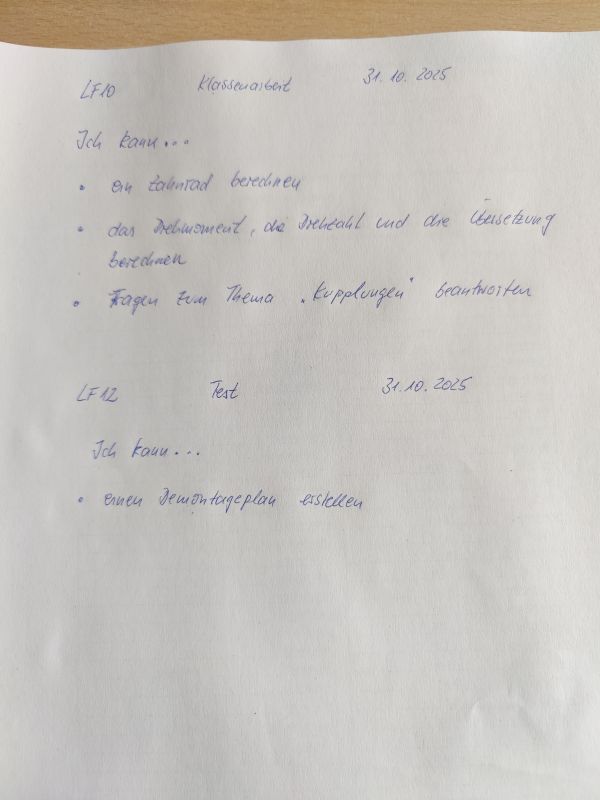 LF10 Klassenarbeit 31.10.2025
Ich kann...
• ein Zahnrad berechnen
• das Drehmoment, die Drehzahl und die Übersetzung
berechnen
• Fragen zum Thema „Kupplungen" beantworten
LF12 Test 31.10.2025
Ich kann...
• einen Demontageplan erstellen